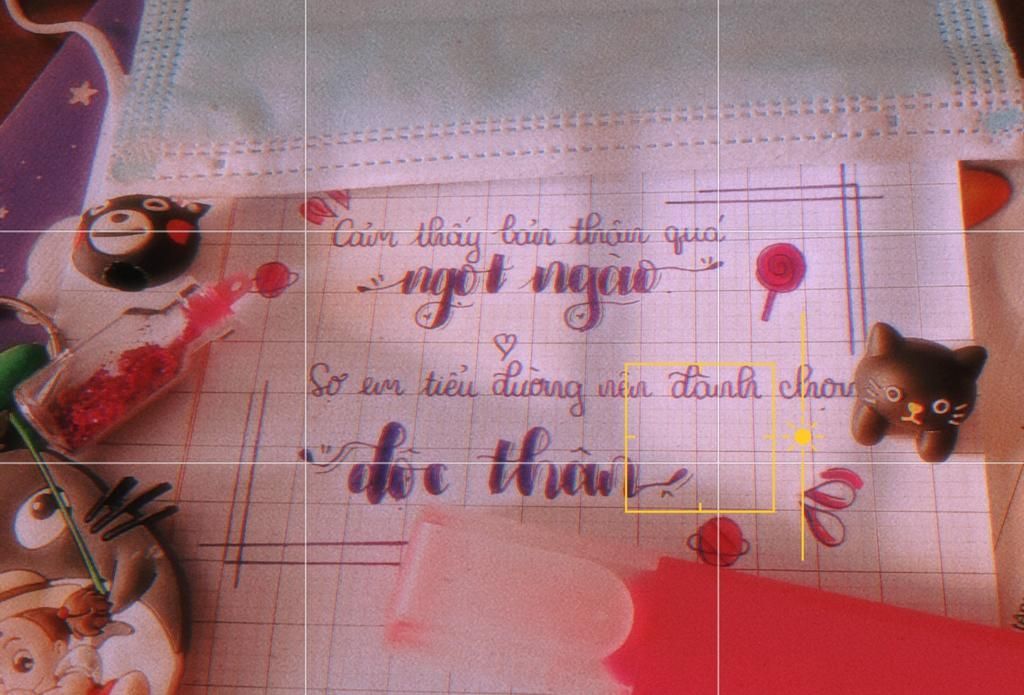 Cảm thấy bản thân quá
ngọt ngào
Sợ em tiểu đường nên đành chọn
độc thân